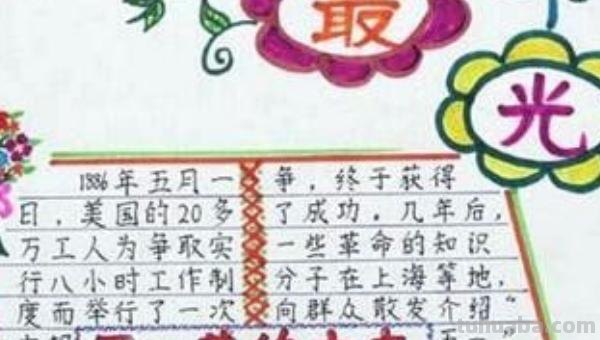 最
光
1886年五月一
日,美国的20多
万工人为争取实
行八小时工作制
度而举行了一次
争,终于获得
了成功。几年后,
一些革命的知识
分子在上海等地,
向群众散发介绍“